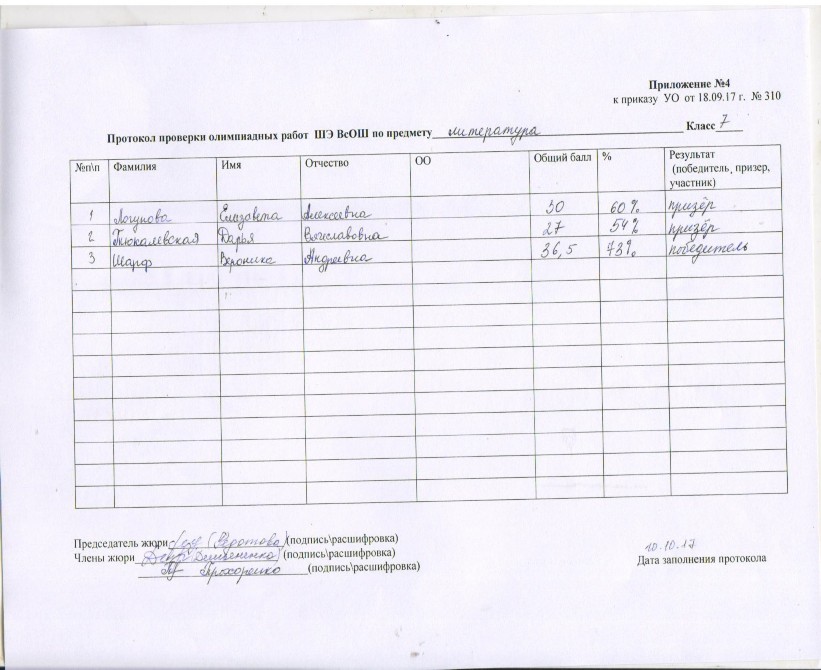 Приложение №4
к приказу УО от 18.09.17 г. № 310
Протокол проверки олимпиадных работ ШЭ ВсОШ по предмету литература Класс 7
№п\п Фамилия Имя Отчество ОО Общий балл % Результат (победитель, призер, участник)
1 Логунова Елизавета Алексеевна 30 60% призёр
2 Тюкалевская Дарья Вячеславовна 27 54% призёр
3 Шарф Вероника Андреевна 36,5 73% победитель
Председатель жюри (Федотова) (подпись\расшифровка)
Члены жюри (подпись\расшифровка)
Прохоренко (подпись\расшифровка)
10.10.17
Дата заполнения протокола